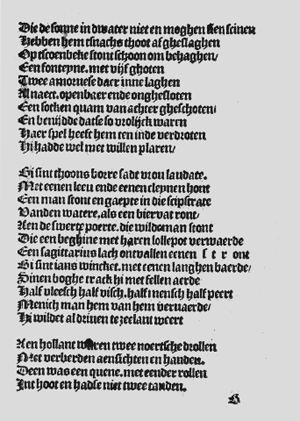 Die de sonne in dwater niet en moghen sien scinen
Hebben hem tsnachs thoot afgheslaghen
Op tscoenbeke stont schoon om behaghen/
Een fonteyne. met vijf ghoten
Twee amoruese daer inne laghen
Al naect. openbaer ende onghesloten
Een sotken quam van achter gheschoten/
En benijdde datse so vrolijck waren
Haer spel heeft hem ten inde verdroten
Hi hadde wel met willen plaren/

Bi sint thoons borre sadt vrou laudate.
Met eenen leeu ende eenen cleynen hont
Een man stont en gaepte in die scipstrate
Vanden watere, als een bier vat ront/
Aen de swerte poerte. die wildeman stont
Die een beghine met haren lollepot verwaerde
Een sagittarius lach ontvallen eenen s t r ont
Bi sint ians wincket. met eenen langhen baerde/
Sinen boghe track hi met fellen aerde
Half vleesch half visch. half mensch half peert
Menich man hem van hem vervaerde/
Hi wildet al driuen te zeelant weert

Aen hollant waren twee noertsche drollen
Met verberden aensichten en handen.
Deen was een quene. met eender rollen
Int hoot en hadse niet twee tanden.